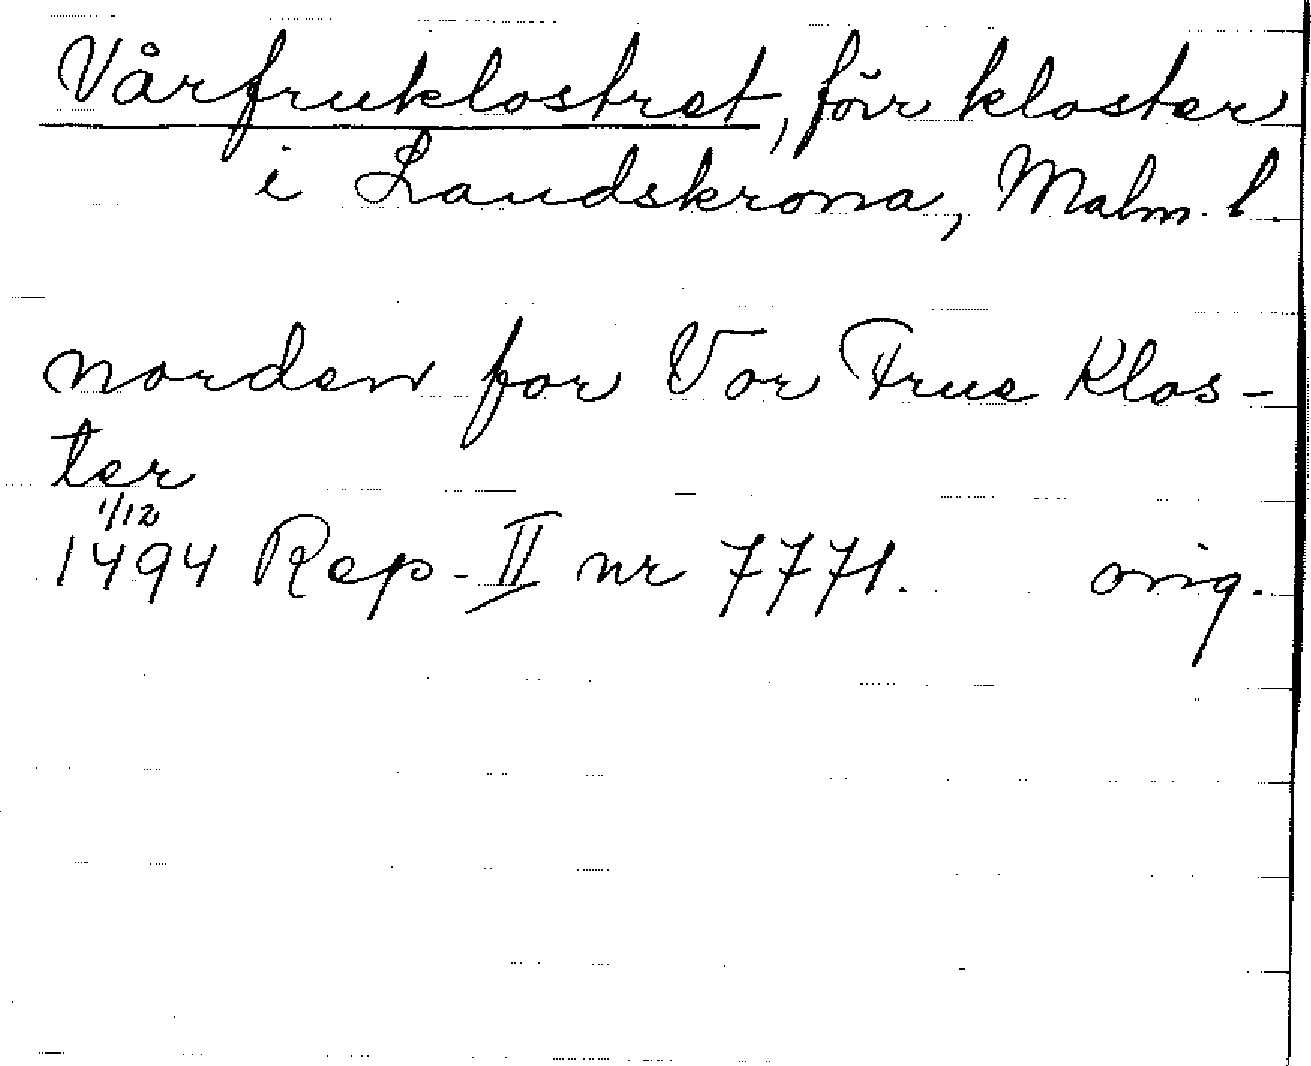 Vårfruklostret, förr kloster
i Landskrona, Malm. l.
norden for Vor Frue Klos-
ter
1/12
1494 Rep. II nr 7771. orig.